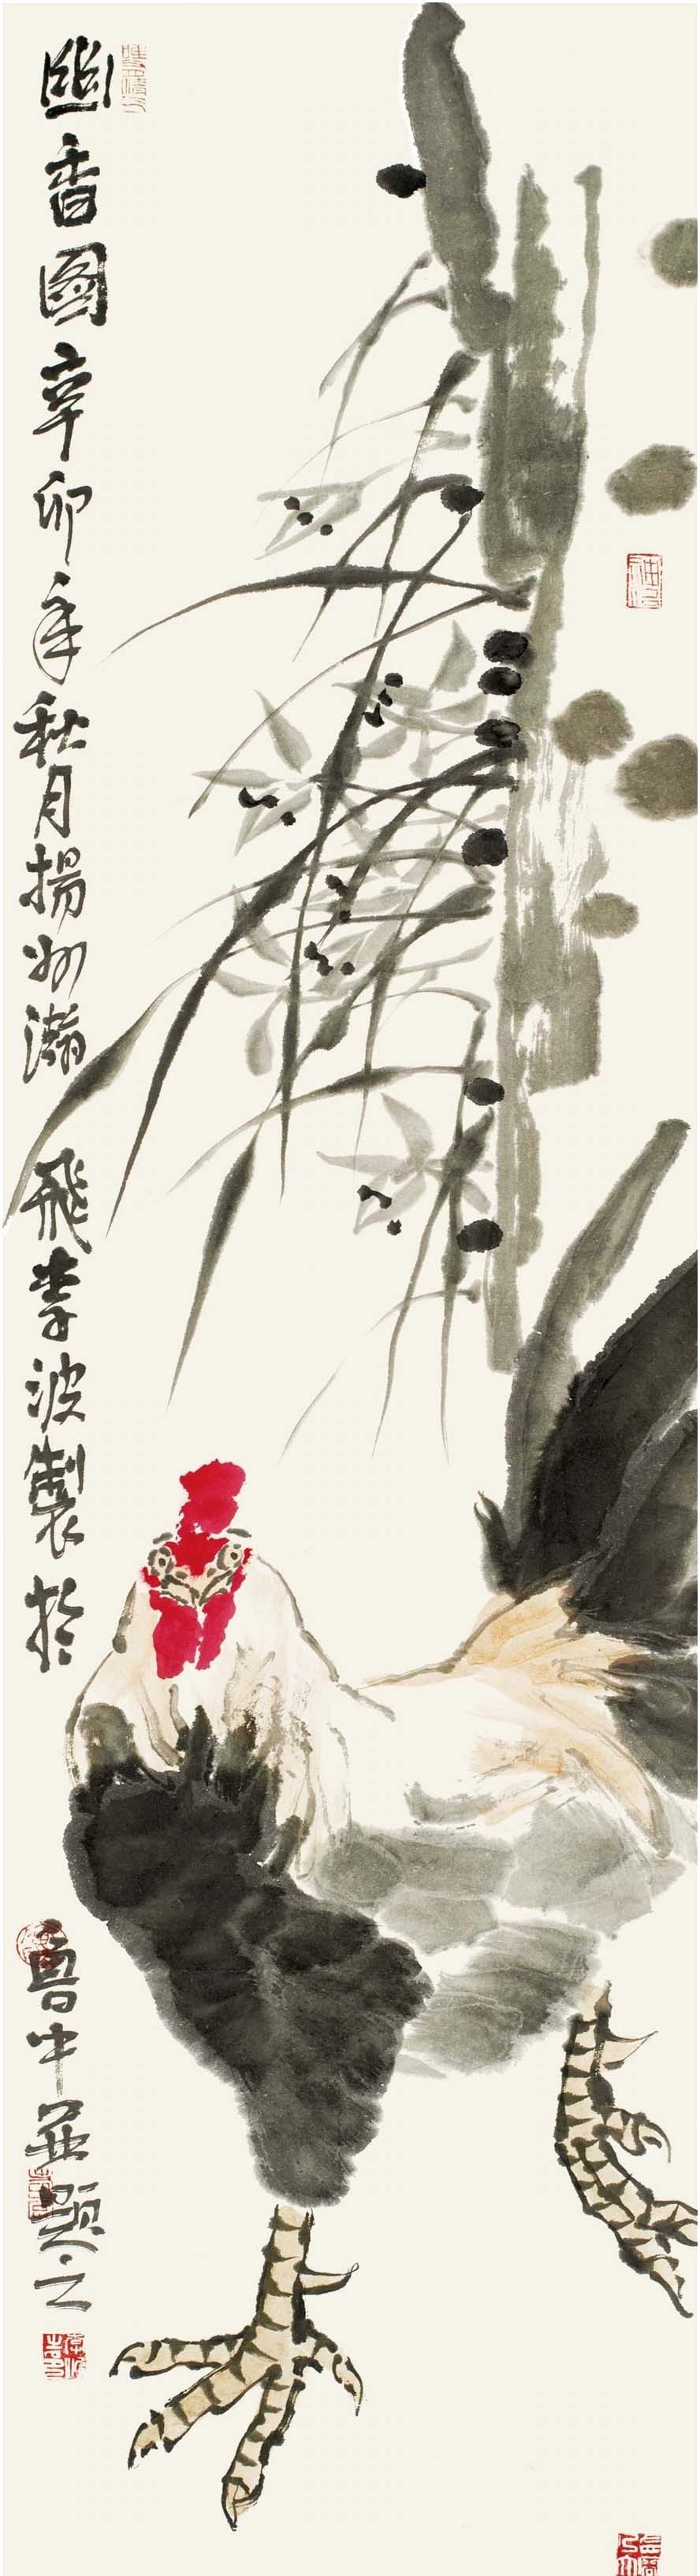 幽香圖辛卯年秋月揚州瀚飛李波製於魯中並題之